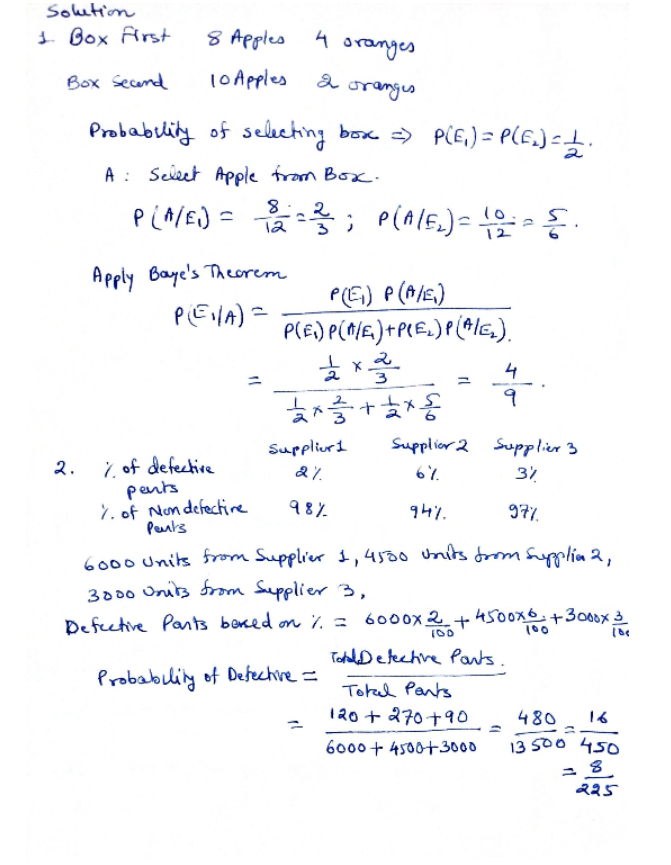 Solution
1. Box First 8 Apples 4 oranges
Box Second 10 Apples 2 oranges
Probability of selecting box ⇒ P(E₁) = P(E₂) = 1/2.
A : Select Apple from Box.
P(A/E₁) = 8/12 = 2/3 ; P(A/E₂) = 10/12 = 5/6.
Apply Baye's Theorem
P(E₁/A) = P(E₁) P(A/E₁) / P(E₁) P(A/E₁) + P(E₂) P(A/E₂).
= 1/2 × 2/3 / 1/2 × 2/3 + 1/2 × 5/6 = 4/9.
Supplier 1 Supplier 2 Supplier 3
2. % of defective parts 2% 6% 3%
% of Non defective Parts 98% 94% 97%
6000 Units from Supplier 1, 4500 Units from Supplier 2,
3000 Units from Supplier 3,
Defective Parts based on % = 6000 × 2/100 + 4500 × 6/100 + 3000 × 3/100
Probability of Defective = Total Defective Parts. / Total Parts
= 120 + 270 + 90 / 6000 + 4500 + 3000 = 480/13500 = 16/450
= 8/225